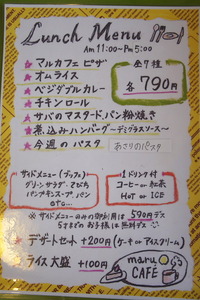 Lunch Menu
Am 11:00~Pm 5:00
★マルカフェ ピザ
★オムライス
★ベジタブルカレー
★チキンロール
★サバのマスタードパン粉焼き
★煮込みハンバーグ~デミグラスソース~
★今週のパスタ
あさりのパスタ
全7種
各790円
サイドメニュー(ブッフェ)
グリーンサラダ・さむち
パンプキンスープ、パン
etc...
1ドリンク付
コーヒー or 紅茶
HOT or ICE
※サイドメニューのみの御利用は590円デス
5才までのお子様は無料デス♡
★デザートセット+200円(ケーキ or アイスクリーム)
★ライス大盛+100円
maru
CAFE